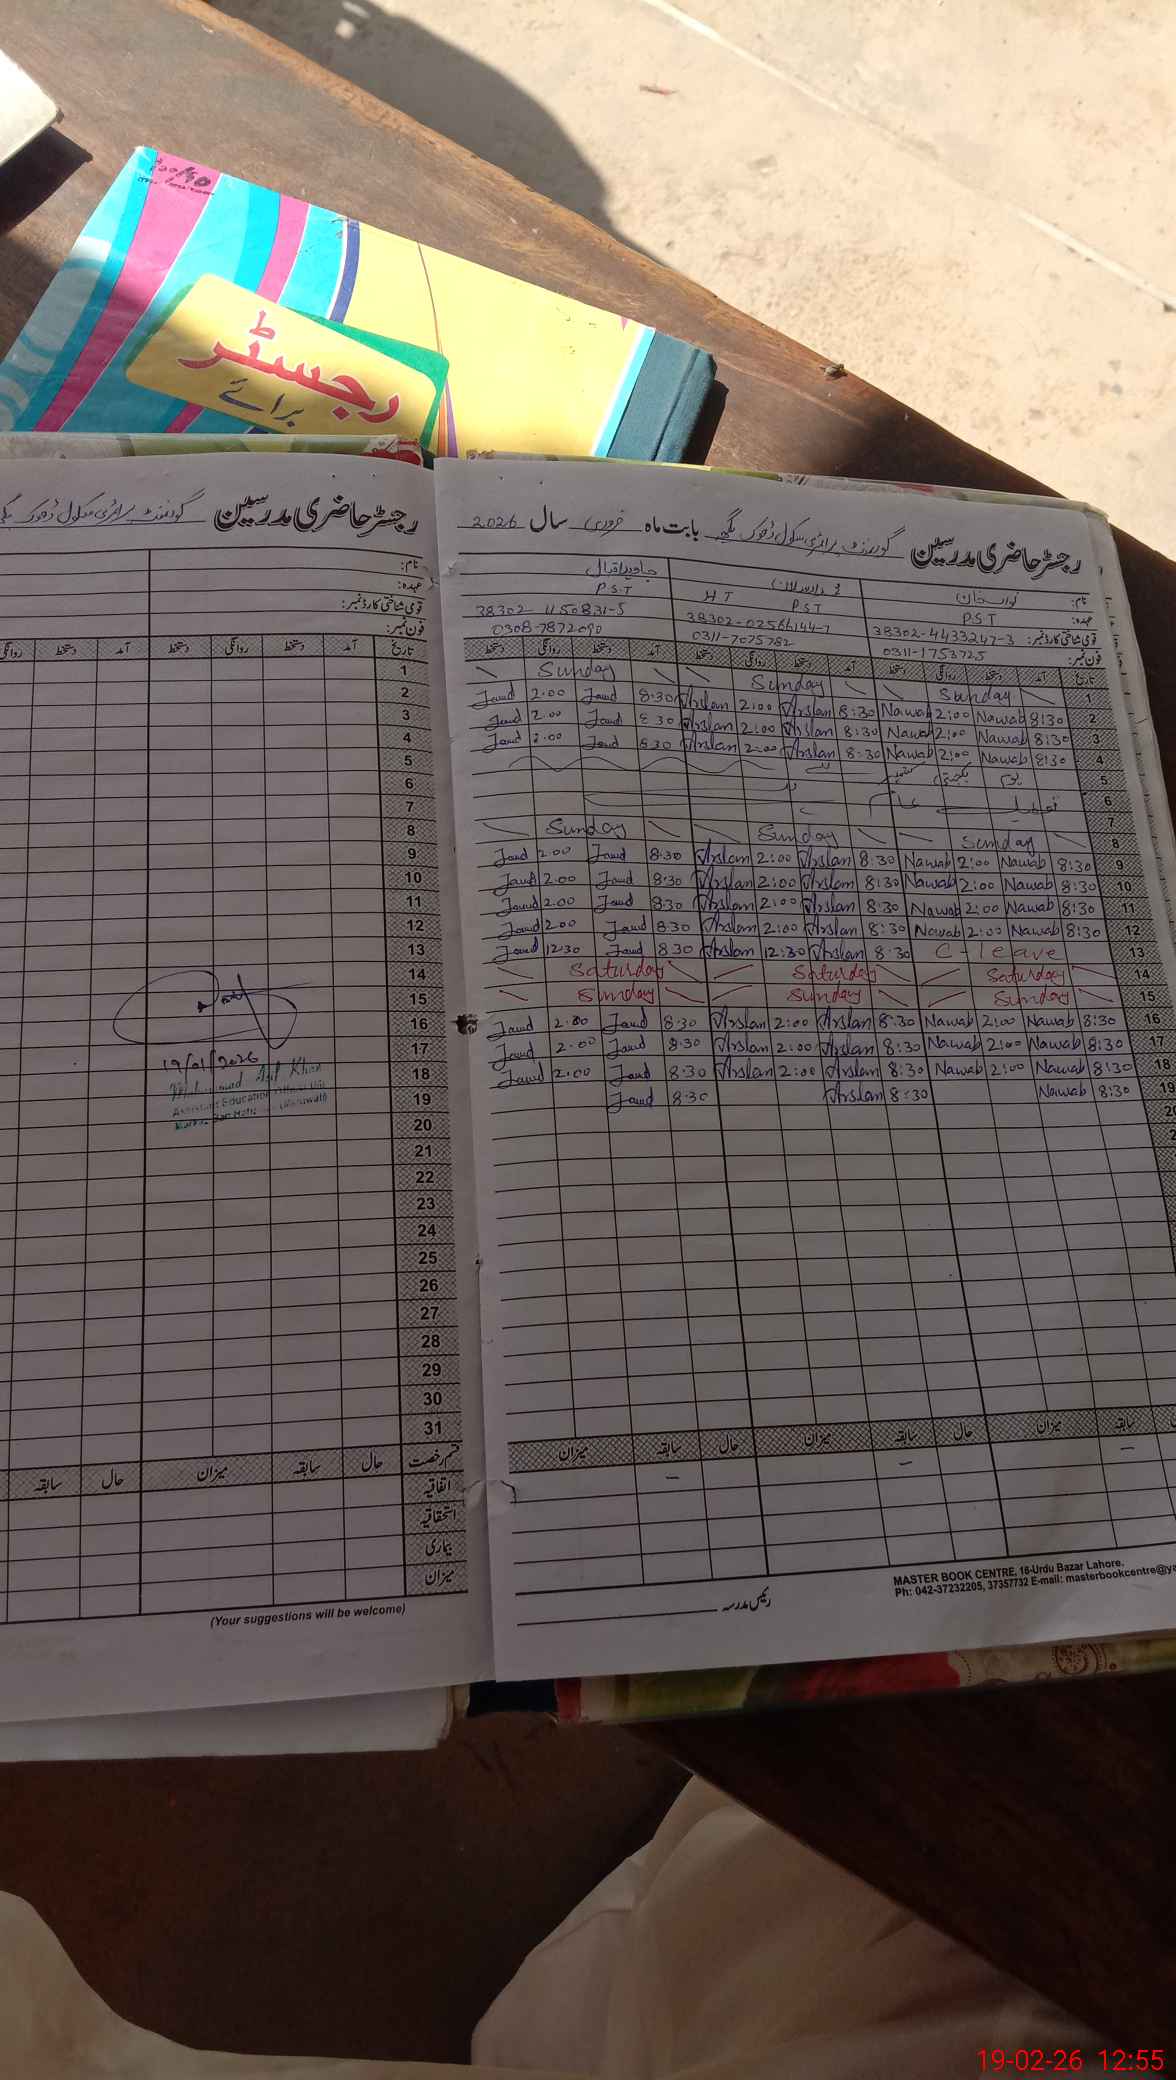 رجسٹر
برائے
رجسٹر حاضری مدرسین گورنمنٹ پرائمری سکول ڈھوک
نام:
عہدہ:
قومی شناختی کارڈ نمبر:
فون نمبر:
تاریخ آمد دستخط روانگی دستخط آمد دستخط روانگی
1
2
3
4
5
6
7
8
9
10
11
12
13
14
15
16
17
18
19
20
21
22
23
24
25
26
27
28
29
30
31
19/01/2026
Muhammad Asif Khan
Assistant Education Officer
قسم رخصت حال سابقہ میزان حال سابقہ
اتفاقیہ
استحقاقیہ
بیماری
میزان
(Your suggestions will be welcome)
رجسٹر حاضری مدرسین گورنمنٹ پرائمری سکول ڈھوک بابت ماہ فروری سال 2026
نام: نواب خان ارسلان جاوید اقبال
عہدہ: P.S.T P.S.T H T P.S.T
قومی شناختی کارڈ نمبر: 38302-4433247-3 38302-0256644-7 38302-1150831-5
فون نمبر: 0311-1753725 0311-7075782 0308-7872090
تاریخ آمد دستخط روانگی دستخط آمد دستخط روانگی دستخط آمد دستخط روانگی دستخط
1 Sunday Sunday Sunday
2 8:30 Nawab 2:00 Nawab 8:30 Arslan 2:00 Arslan 8.30 Jawd 2.00 Jawd
3 8:30 Nawab 2:00 Nawab 8:30 Arslan 2:00 Arslan 8 30 Jawd 2.00 Jawd
4 8:30 Nawab 2:00 Nawab 8:30 Arslan 2:00 Arslan 8 30 Jawd 2.00 Jawd
5 یوم یکجہتی کشمیر
6 عام تعطیل
7
8 Sunday Sunday Sunday
9 8:30 Nawab 2:00 Nawab 8:30 Arslan 2:00 Arslan 8.30 Jawd 2.00 Jawd
10 8:30 Nawab 2:00 Nawab 8:30 Arslan 2:00 Arslan 8.30 Jawd 2.00 Jawd
11 8:30 Nawab 2:00 Nawab 8:30 Arslan 2:00 Arslan 8.30 Jawd 2.00 Jawd
12 8:30 Nawab 2:00 Nawab 8:30 Arslan 2:00 Arslan 8.30 Jawd 2.00 Jawd
13 C-leave 8.30 Arslan 12:30 Arslan 8.30 Jawd 12.30 Jawd
14 Saturday Saturday Saturday
15 Sunday Sunday Sunday
16 8:30 Nawab 2:00 Nawab 8:30 Arslan 2:00 Arslan 8.30 Jawd 2.00 Jawd
17 8:30 Nawab 2:00 Nawab 8:30 Arslan 2:00 Arslan 8.30 Jawd 2.00 Jawd
18 8:30 Nawab 2:00 Nawab 8:30 Arslan 2:00 Arslan 8.30 Jawd 2.00 Jawd
19 8:30 Nawab 8:30 Arslan 8.30 Jawd
سابقہ میزان حال سابقہ میزان حال سابقہ میزان
رئیس مدرسہ
MASTER BOOK CENTRE, 16-Urdu Bazar Lahore.
Ph: 042-37232205, 37357732 E-mail: masterbookcentre@ya
19-02-26 12:55